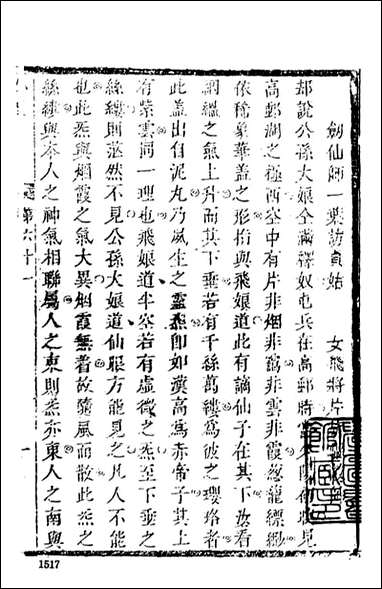 劍仙師一葉訪貞姑 女飛將片
却說公孫大娘令滿釋奴屯兵在高郵時見
高郵湖之極西空中有片非烟非霧非雲非霞葱蘢縹緲
依稀象華蓋之形指與飛娘道此有謫仙子在其下汝看
絪縕之氣上升而其下垂若有千絲萬縷爲彼之瓔珞者
此蓋出自泥丸乃夙生之靈炁卽如漢高爲赤帝子其上
有紫雲同一理也飛娘道半空若有虛微之炁至下垂之
絲縷則茫然不見公孫大娘道仙眼方能見之凡人不能
也此炁與烟霞之氣大異烟霞無着故隨風而散此炁之
絲縷與本人之神氣相聯屬人之東則炁亦東人之南與
第六十一
一
1517